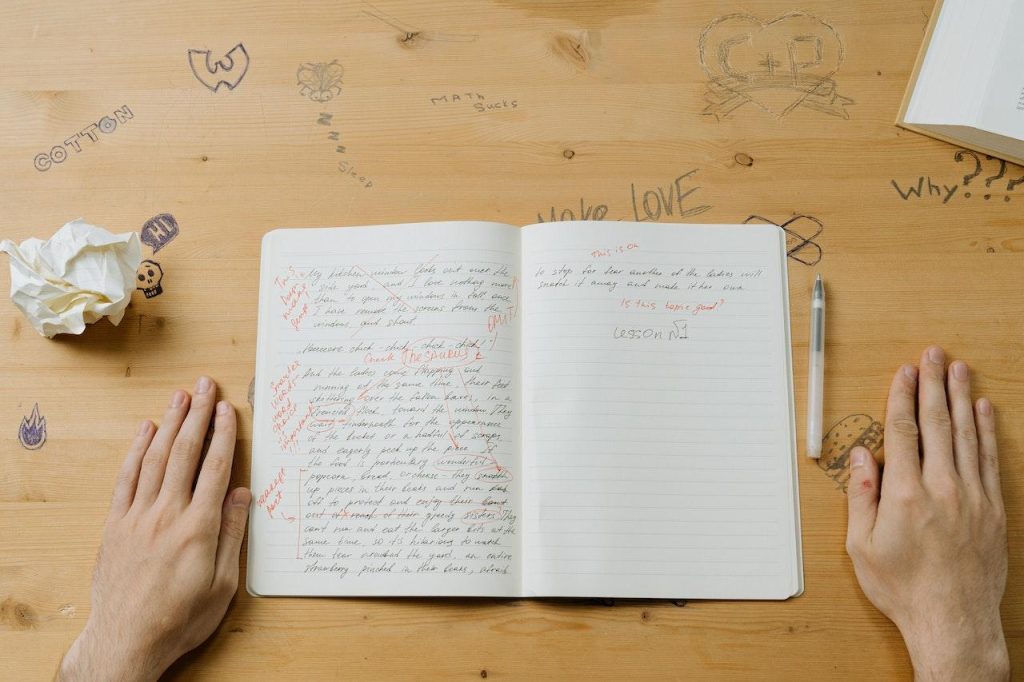 W
COTTON
MATH
Sucks
C+P
Sleep
Why???
Make LOVE
HI
My kitchen window looks out over the
side yard, and I love nothing more
than to open my windows in fall, once
I have remove the screens from the
windows, and shout.
OMIT!
chick-chick, chick-chick!
Check THESAURUS
And the ladies come flapping and
running at the same time, their feet
skittering over the fallen leaves, in a
frenzied flock, toward the window. They
wait underneath for the appearance
of the bucket or a handful of scraps,
and eagerly peck up the piece. If
the food is particulary wonderful
popcorn, bread, or cheese - they snatch
up pieces in their beaks and run
off to protect and enjoy their
out of reach of their greedy sisters. They
can't run and eat the larger bits at the
same time, so it's hilarious to watch
them tear around the yard, an entire
strawberry pinched in their beaks, afraid
This is ok
to stop for fear another of the ladies will
snatch it away and make it her own
Is this topic good?
Lesson №1